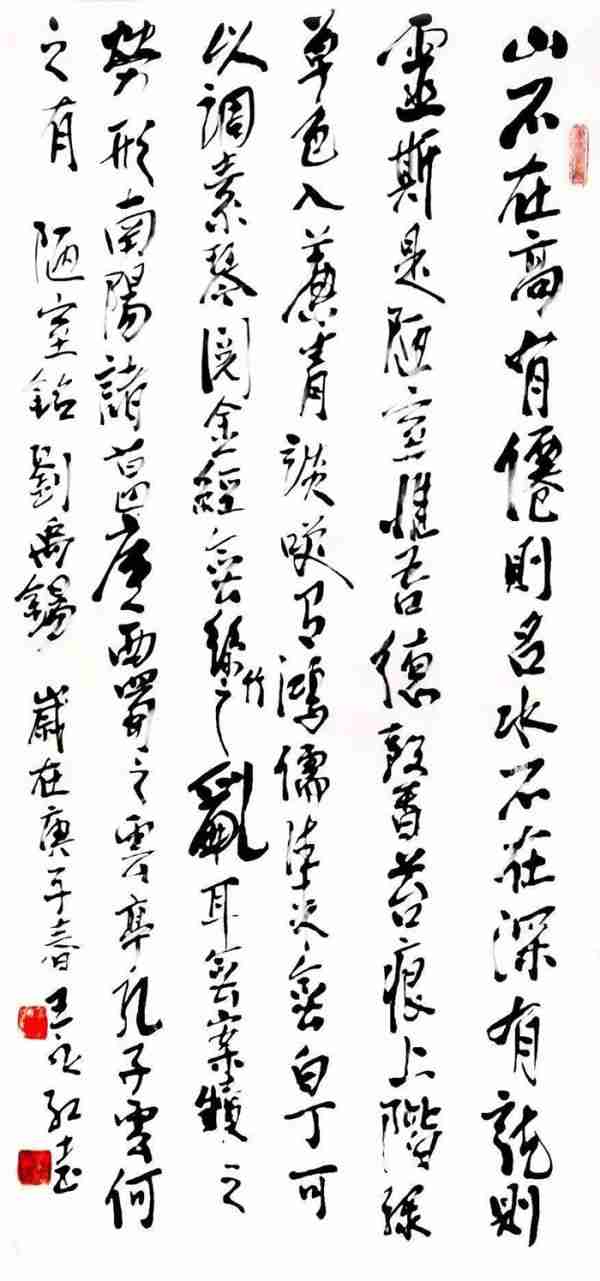 山不在高有僊則名水不在深有龍則
靈斯是陋室惟吾德馨苔痕上階綠
草色入簾青談咲有鴻儒往來無白丁可
以調素琴閱金經無絲竹之亂耳無案牘之
勞形南陽諸葛廬西蜀之雲亭孔子雲何
之有 陋室銘劉禹錫 歲在庚子春王永紅書